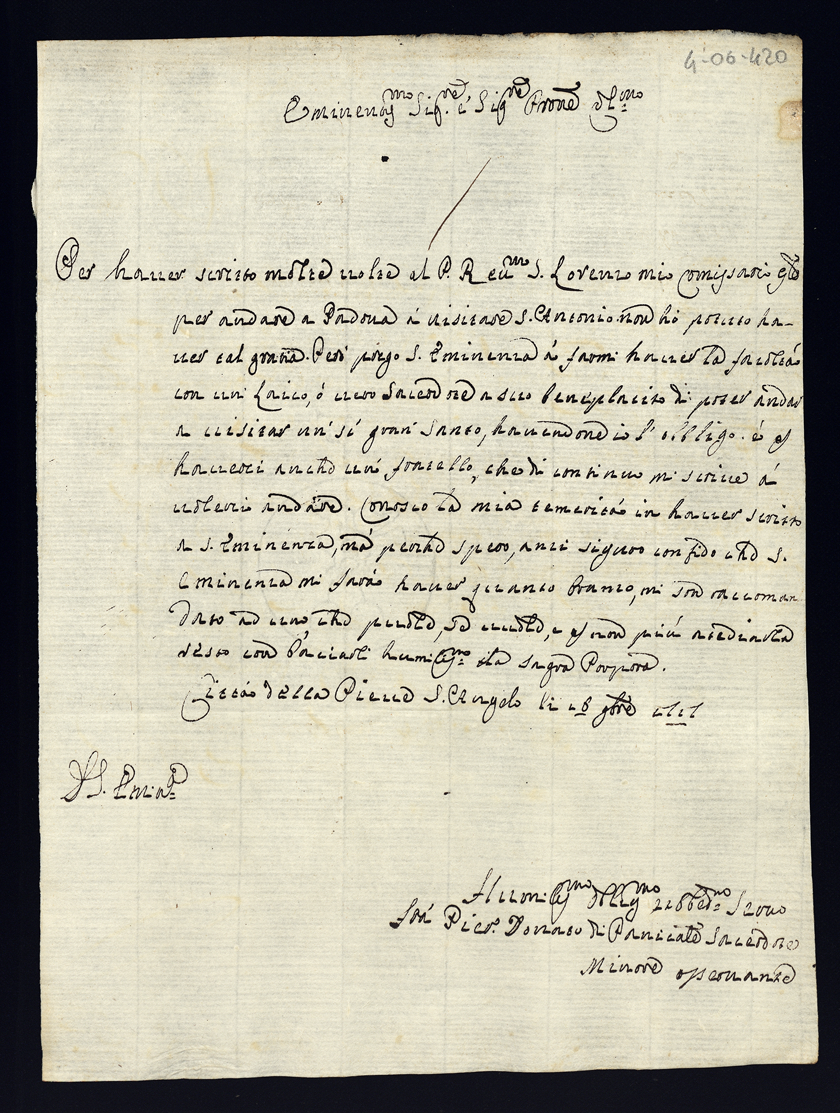 4-06-420
Eminen^mo Sig^re e Sig^re Prone
Per hauer scritto molte uolte al P. Reu^mo S. Lorenzo mio Comissario Gle
per andare a Padoua á uisitare S. Antonio non hó potuto ha-
uer tal grana. Peró prego S. Eminenza á farmi hauer la facoltá
con un Laico, ó uero Sacerdote a suo beneplacito di poter andar
a uisitar un sí gran Santo, hauendone io l'obbligo. é
hauerci anche un fratello, che di continuo mi scriue á
uolerci andare. Conosco la mia temeritá in hauer scritto
a S. Eminenza, má perche spero, anzi siguro confido che S.
Eminenza mi fará hauer quanto bramo, mi son raccoman
dato ad uno che puole, se uuole, e non piú atediarla
resto con baciarli humil^mo la sagra Porpora.
Cittá della Pieue S. Angelo li 16 9bre
D S. Emin^a
Humil^mo ubbed^mo Seruo
Frá Pier Donato di Panicale Sacerdote
Minore osseruante